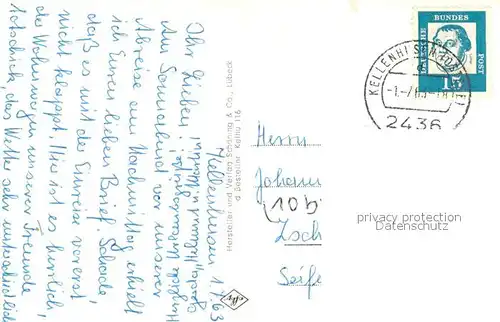 Kellenhusen 1.7.63
Ihr Lieben!
Am Sonnabend vor unserer
Abreise am Nachmittag erhielt
ich Euren lieben Brief. Schade,
daß es mit der Einreise vorerst
nicht klappt! Hier ist es herrlich,
der Wohnwagen unserer Freunde
totschick, das Wetter sehr unterschiedlich
Hersteller und Verlag Schöning & Co., Lübeck
Bestellnr. Kellhu 116
DEUTSCHE
BUNDES
POST
15
KELLENHUSEN
-1.-7.63
2436
Herrn
Johann
(10b)
Zsch
Seife
privacy protection
Datenschutz